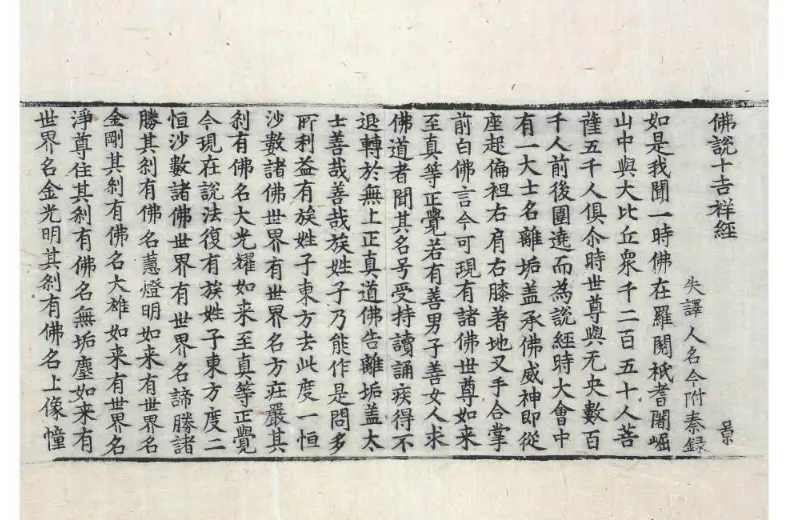 佛說十吉祥經
景
失譯人名今附秦錄
如是我聞一時佛在羅閱祇耆闍崛
山中與大比丘衆千二百五十人菩
薩五千人俱尒時世尊與无央數百
千人前後圍遶而為說經時大會中
有一大士名離垢盖承佛威神即從
座起偏袒右肩右膝著地叉手合掌
前白佛言今可現有諸佛世尊如来
至真等正覺若有善男子善女人求
佛道者聞其名号受持讀誦疾得不
退轉於無上正真道佛告離垢盖太
士善哉善哉族姓子乃能作是問多
所利益有族姓子東方去此度一恒
沙數諸佛世界有世界名方莊嚴其
刹有佛名大光耀如来至真等正覺
今現在說法復有族姓子東方度二
恒沙數諸佛世界有世界名諦勝諸
勝其刹有佛名慧燈明如来有世界名
金剛其刹有佛名大雄如来有世界名
淨尊住其刹有佛名無垢塵如来有
世界名金光明其刹有佛名上像幢